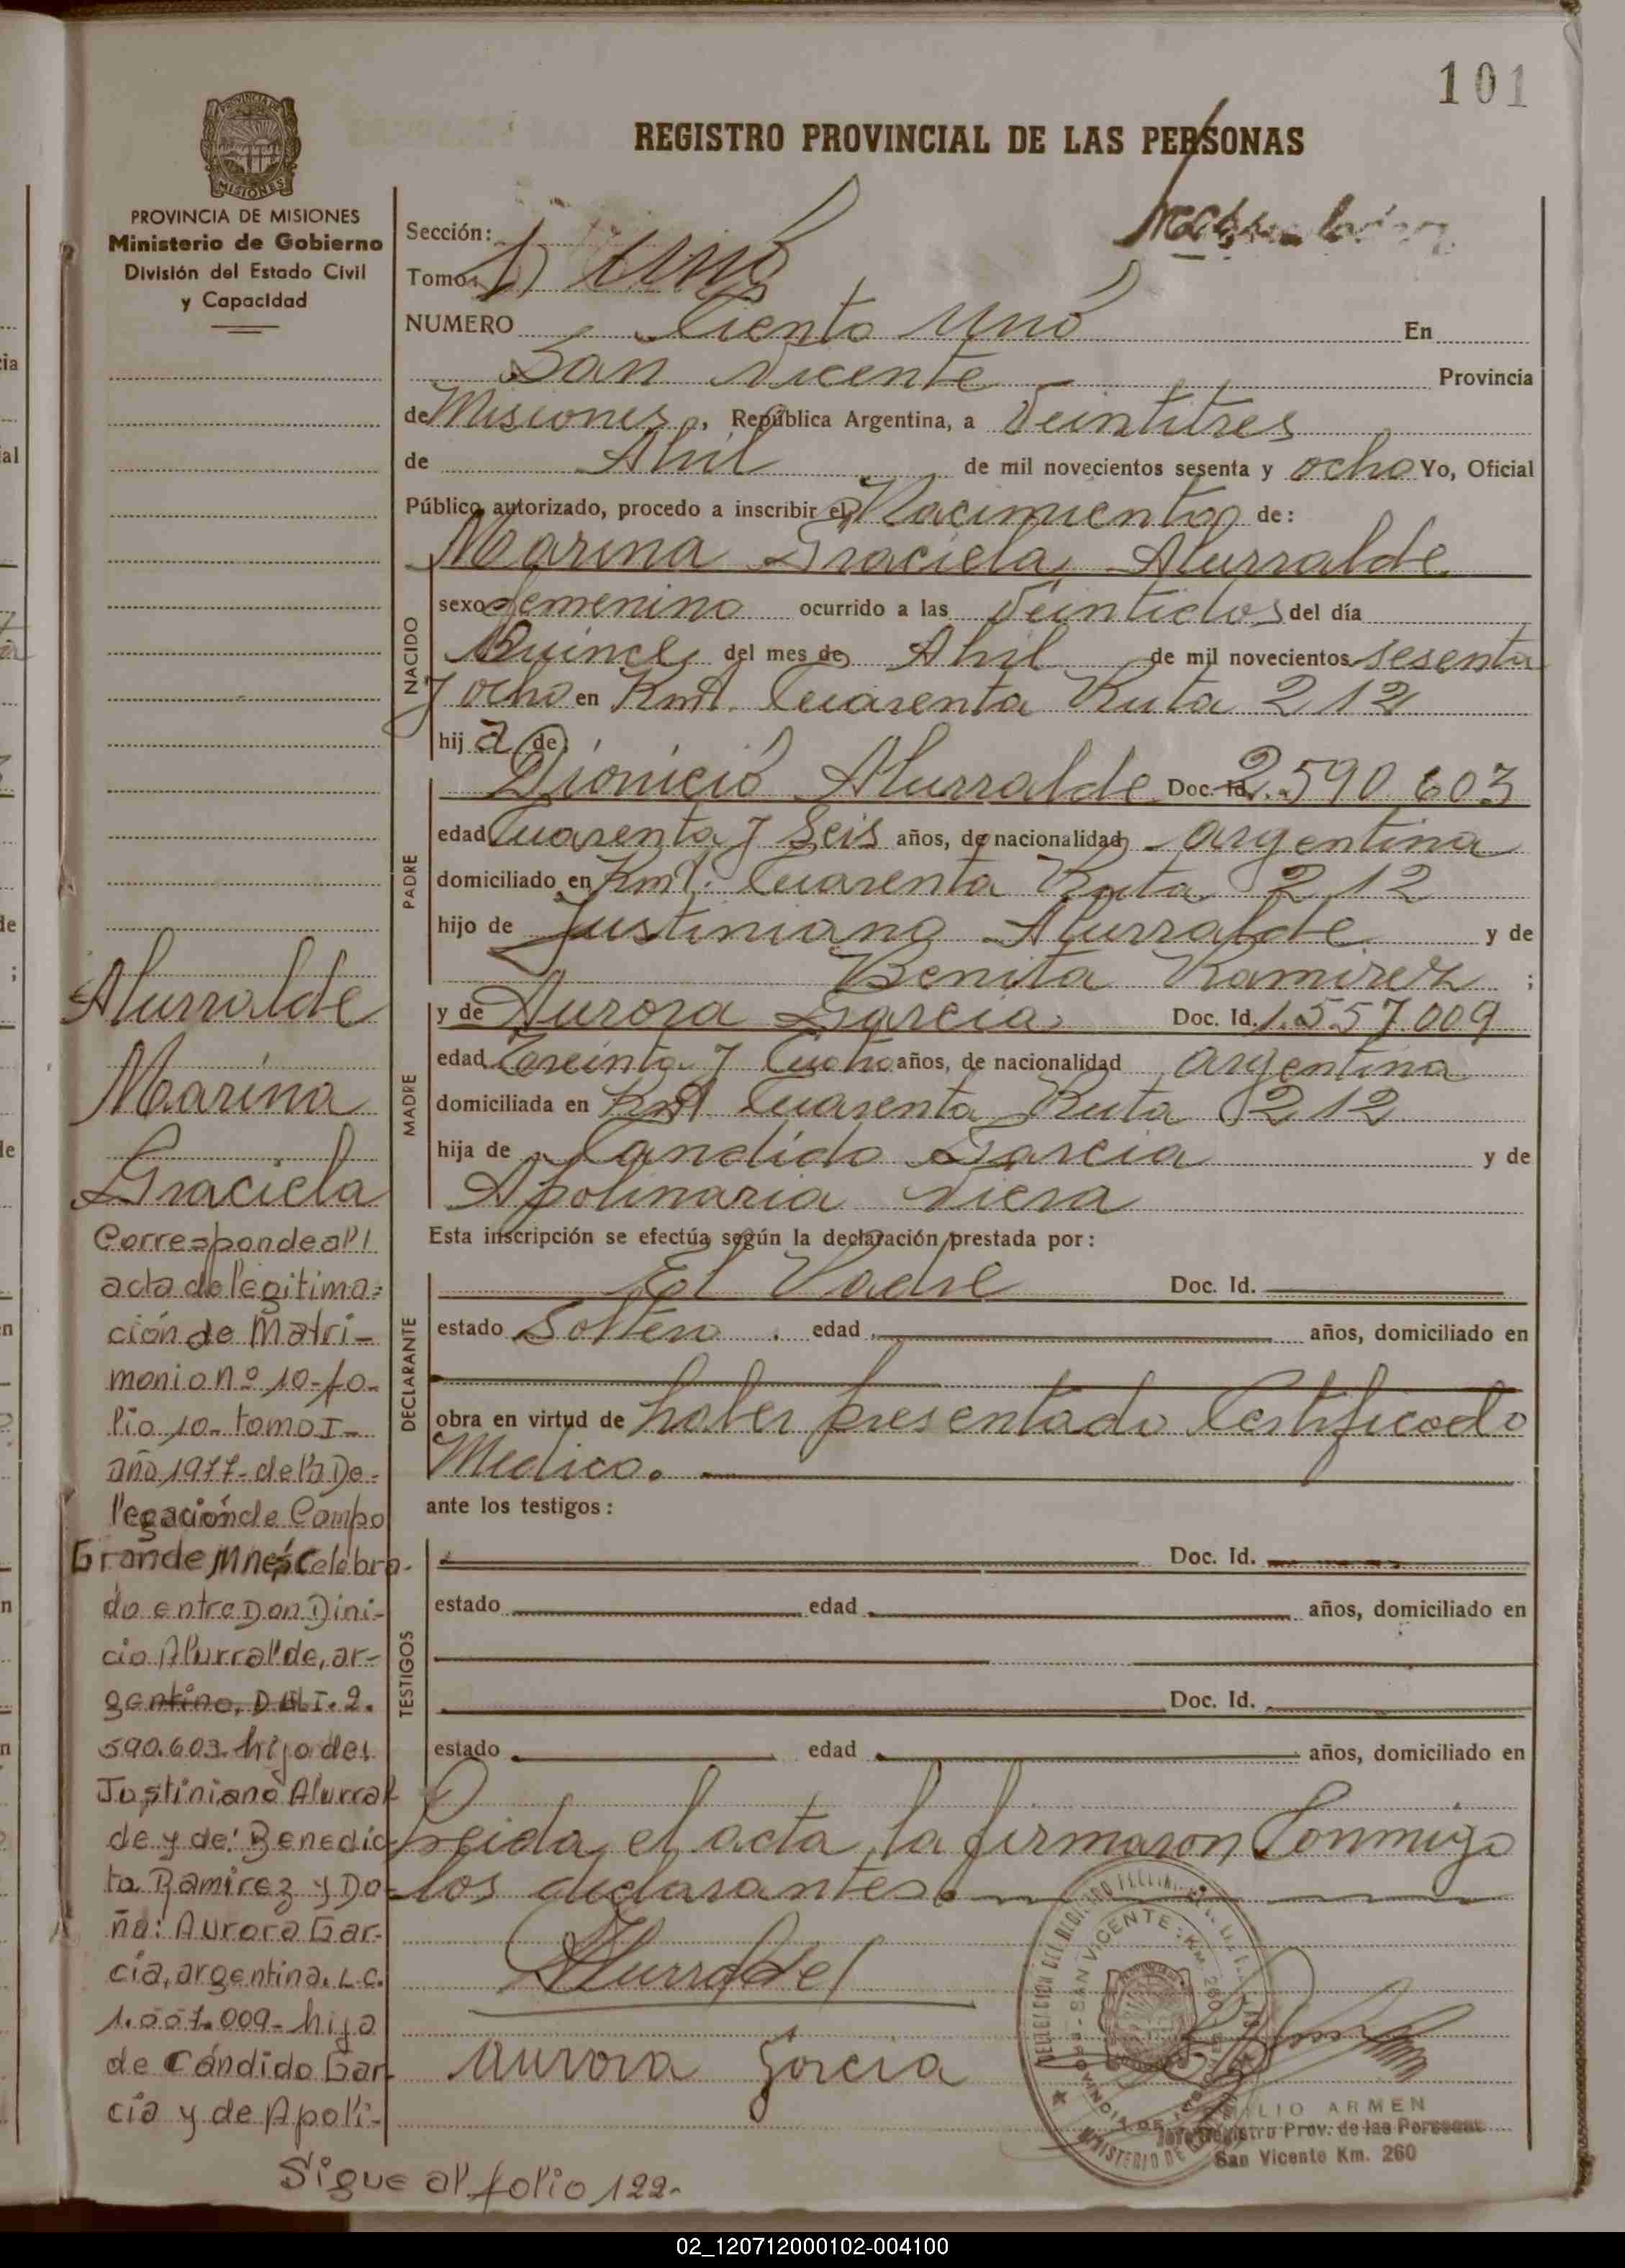 101
REGISTRO PROVINCIAL DE LAS PERSONAS
PROVINCIA DE MISIONES
Ministerio de Gobierno
División del Estado Civil
y Capacidad
Sección: 1)
Tomo: 1) Uno
NUMERO Ciento Uno En
San Vicente Provincia
de Misiones, República Argentina, a Veintitres
de Abril de mil novecientos sesenta y ocho Yo, Oficial
Público autorizado, procedo a inscribir el Nacimiento de:
Marina Graciela Alurralde
NACIDO
sexo femenino ocurrido a las Veintidos del día
Quince del mes de Abril de mil novecientos sesenta
y ocho en Kmt. Cuarenta Ruta 212
hija de
PADRE
Dionicio Alurralde Doc. Id. 2.590.603
edad Cuarenta y Seis años, de nacionalidad argentina
domiciliado en Kmt. Cuarenta Ruta 212
hijo de Justiniano Alurralde y de
Benita Ramirez ;
MADRE
y de Aurora Garcia Doc. Id. 1.557.009
edad Treinta y Cuatro años, de nacionalidad argentina
domiciliada en Kmt Cuarenta Ruta 212
hija de Candido Garcia y de
Apolinaria Viera
Esta inscripción se efectúa según la declaración prestada por:
DECLARANTE
El Padre Doc. Id.
estado Soltero edad años, domiciliado en
obra en virtud de haber presentado Certificado
Medico.
ante los testigos:
TESTIGOS
Doc. Id.
estado edad años, domiciliado en
Doc. Id.
estado edad años, domiciliado en
Leida el acta la firmaron Conmigo
los declarantes.
Alurralde
Aurora Garcia
SAN VICENTE - KM. 260
EMILIO ARMEN
Jefe Registro Prov. de las Personas
San Vicente Km. 260
Alurralde
Marina
Graciela
Corresponde al
acta de legitima=
ción de Matri-
monio nº 10-fo-
lio 10- tomo I-
año 1977- de la De-
legación de Campo
Grande Mnes Celebra-
do entre Don Dini-
cio Alurralde, ar-
gentino, D.N.I. 2.
590.603. hijo de:
Justiniano Alurral
de y de: Benedic-
ta Ramirez y Do-
ña: Aurora Gar-
cía, argentina. L.C.
1.557.009- hija
de Cándido Gar-
cía y de Apoli-
Sigue al folio 122.
02_120712000102-004100